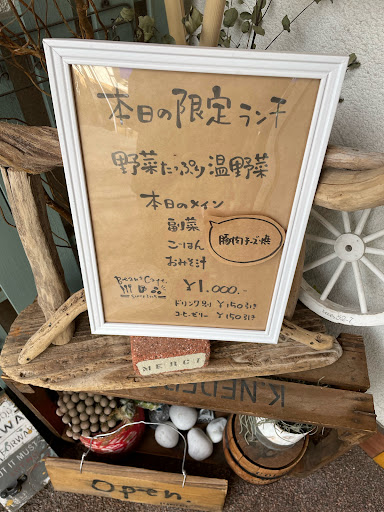 本日の限定ランチ
野菜たっぷり温野菜
本日のメイン
副菜
ごはん
おみそ汁
豚肉チーズ焼
¥1,000.-
ドリンク別 ¥150引き
コーヒーゼリー ¥150引き
MERCI
K.NEDER
Open.